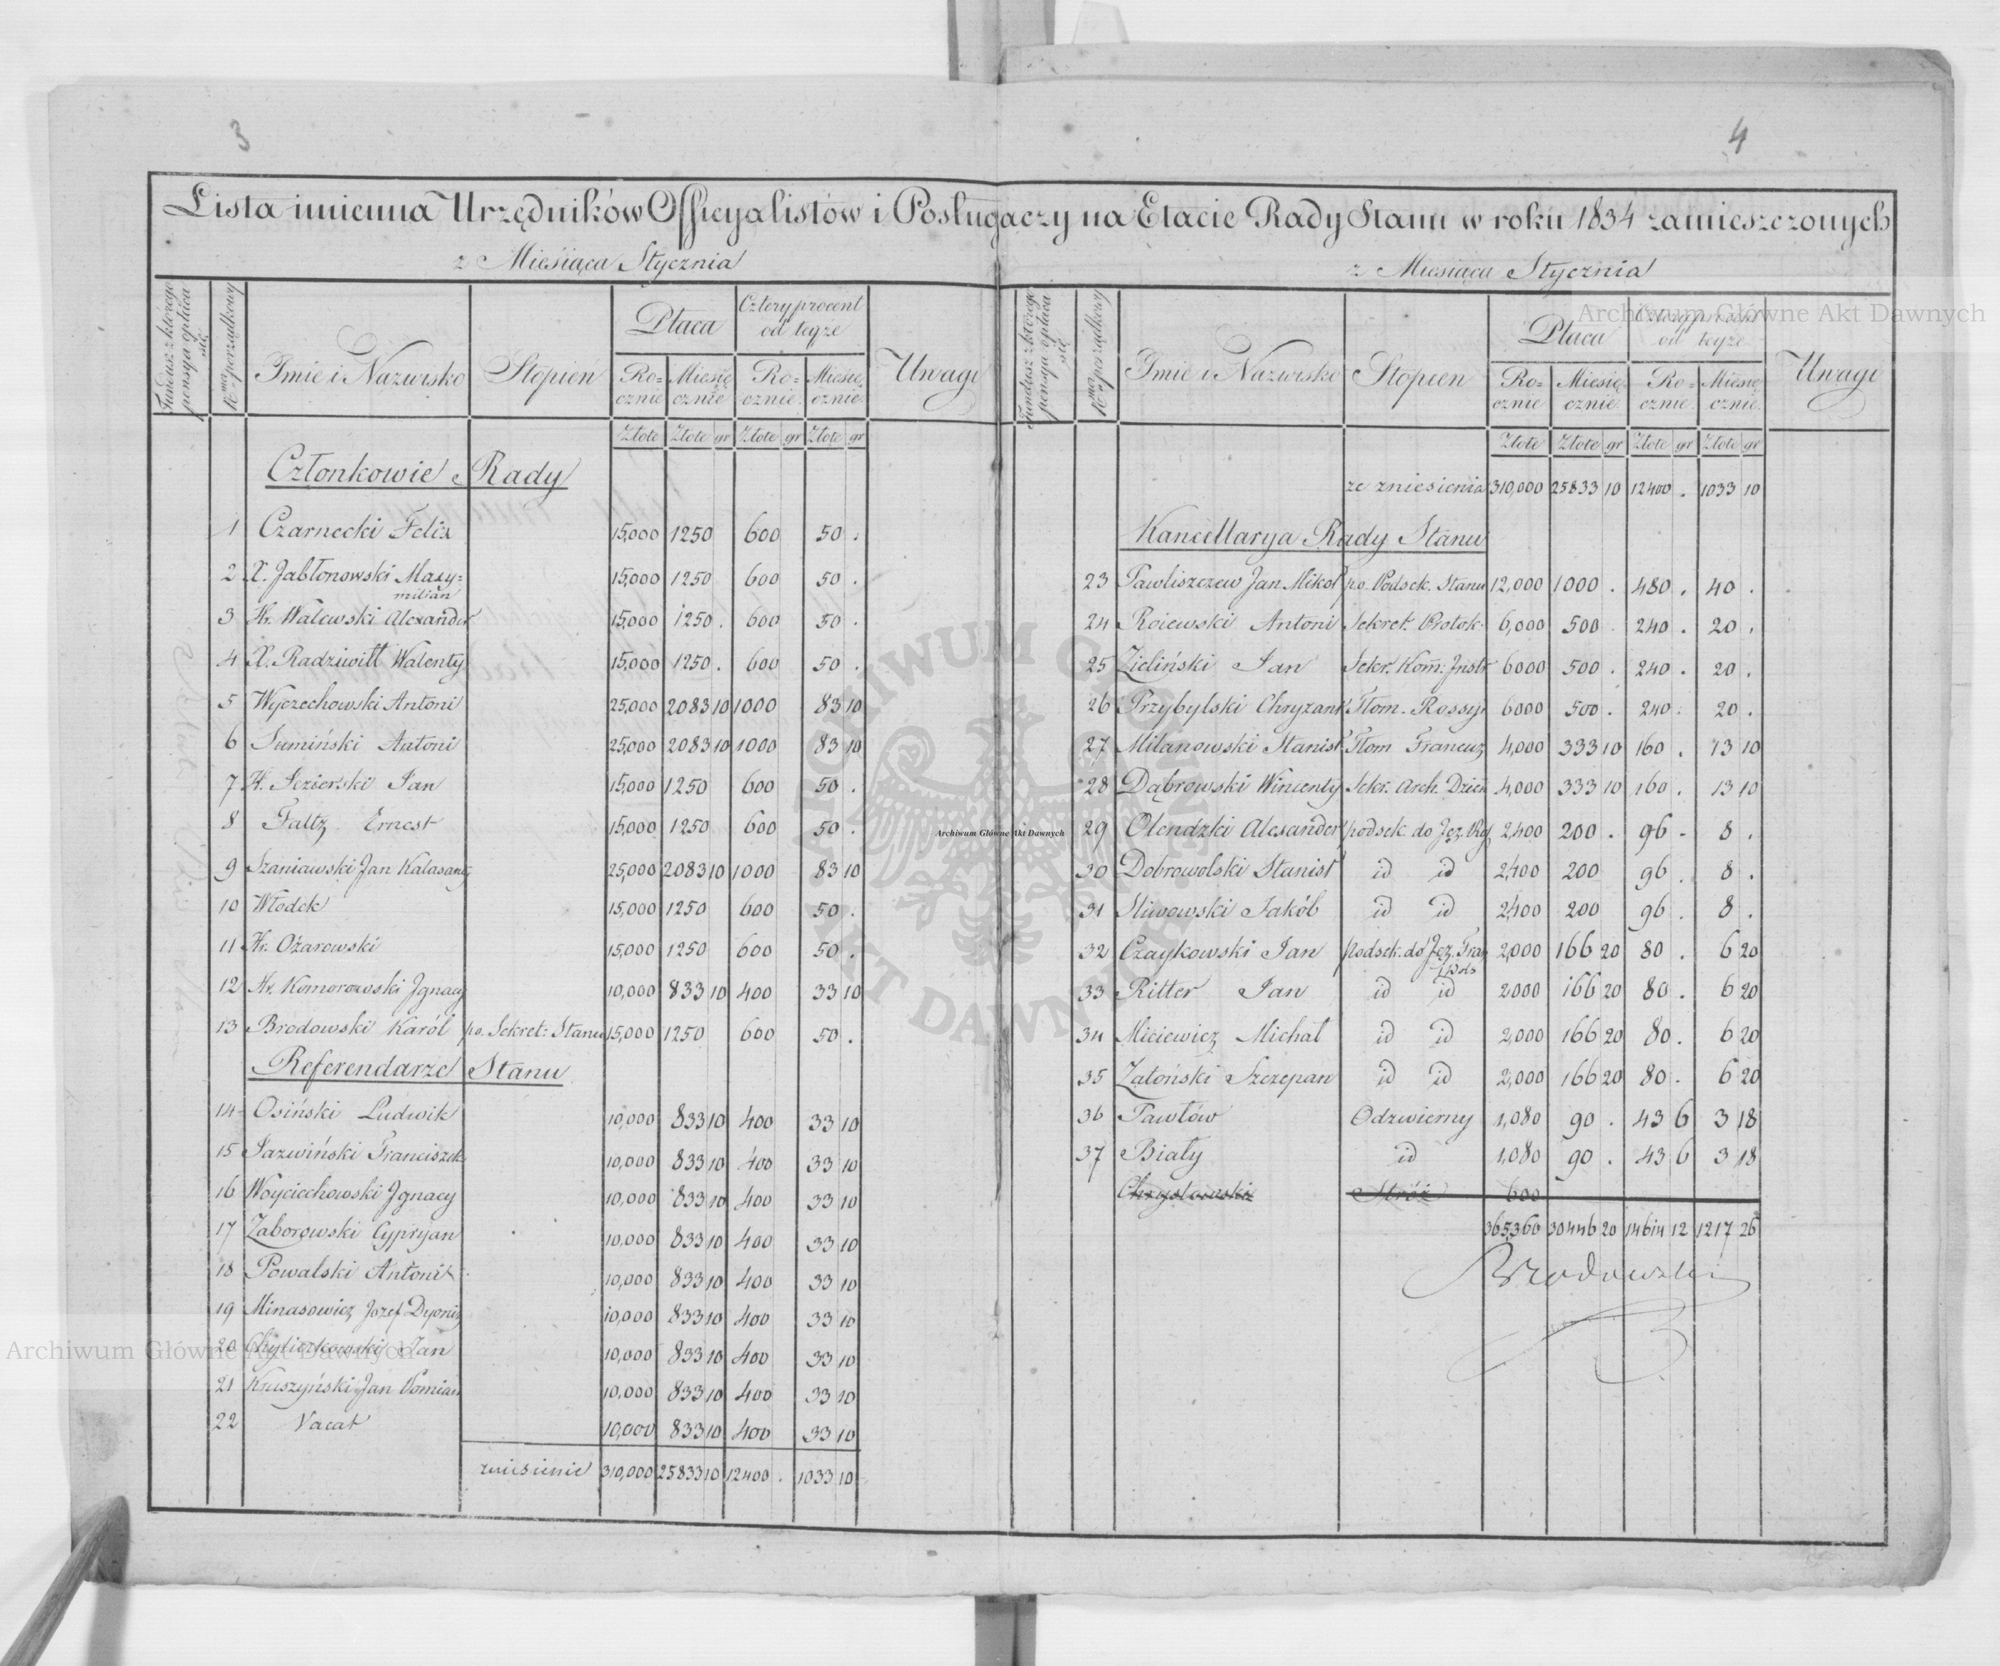 3
4
Lista imienna Urzędników Officyalistów i Posługaczy na Etacie Rady Stanu w roku 1834 zamieszczonych
z Miesiąca Stycznia
z Miesiąca Stycznia
Fundusz z którego pensya opłaca się
Nma porządkowy
Imie i Nazwisko
Stopień
Płaca
Cztery procent od teyże
Uwagi
Rocznie Miesięcznie Rocznie Miesięcznie
Złote Złote gr Złote gr Złote gr
Członkowie Rady
1 Czarnecki Felix 15,000 1250 600 50 .
2 X. Jabłonowski Maxy=
milian 15,000 1250 600 50 .
3 Hr. Walewski Alexander 15,000 1250 . 600 50 .
4 X. Radziwiłł Walenty 15,000 1250 . 600 50 .
5 Wyczechowski Antoni 25,000 2083 10 1000 83 10
6 Sumiński Antoni 25,000 2083 10 1000 83 10
7 H. Jezierski Jan 15,000 1250 600 50 .
8 Faltz Ernest 15,000 1250 600 50 .
9 Szaniawski Jan Kalasanty 25,000 2083 10 1000 83 10
10 Włodek 15,000 1250 600 50 .
11 Hr. Ożarowski 15,000 1250 600 50 .
12 Hr. Komorowski Ignacy 10,000 833 10 400 33 10
13 Brodowski Karól po. Sekret: Stanu 15,000 1250 600 50 .
Referendarze Stanu
14 Osiński Ludwik 10,000 833 10 400 33 10
15 Jazwiński Franciszek 10,000 833 10 400 33 10
16 Woyciechowski Ignacy 10,000 833 10 400 33 10
17 Zaborowski Cypryan 10,000 833 10 400 33 10
18 Powalski Antoni 10,000 833 10 400 33 10
19 Minasowicz Jozef Dyoniz 10,000 833 10 400 33 10
20 Chyliczkowski Jan 10,000 833 10 400 33 10
21 Kruszyński Jan Pomian 10,000 833 10 400 33 10
22 Vacat 10,000 833 10 400 33 10
zniesienie 310,000 25833 10 12400 . 1033 10
Fundusz z którego pensya opłaca się
Nma porządkowy
Imie i Nazwisko
Stopień
Płaca
Cztery procent od teyże
Uwagi
Rocznie Miesięcznie Rocznie Miesięcznie
Złote Złote gr Złote gr Złote gr
ze zniesienia 310,000 25833 10 12400 . 1033 10
Kancellarya Rady Stanu
23 Pawliszczew Jan Mikoł po. Podsek. Stanu 12,000 1000 . 480 . 40 .
24 Rojewski Antoni Sekret. Protok. 6,000 500 . 240 . 20 .
25 Zieliński Jan Sekr. Kom: Instr 6000 500 . 240 . 20 .
26 Przybylski Chryzant Tłom. Rossyi 6000 500 . 240 . 20 .
27 Milanowski Stanisł Tłom Francuz 4,000 333 10 160 . 13 10
28 Dąbrowski Wincenty Sekr. Arch. Dzien 4,000 333 10 160 . 13 10
29 Olendzki Alexander podsek. do Jęz. Ros 2,400 200 . 96 . 8 .
30 Dobrowolski Stanisł id id 2,400 200 96 . 8 .
31 Sliwowski Jakób id id 2,400 200 96 . 8 .
32 Czaykowski Jan Podsek. do Jęz. Fran
i Pols 2,000 166 20 80 . 6 20
33 Ritter Jan id id 2000 166 20 80 . 6 20
34 Miciewicz Michał id id 2,000 166 20 80 . 6 20
35 Zatoński Szczepan id id 2,000 166 20 80 . 6 20
36 Pawłów Odzwierny 1,080 90 . 43 6 3 18
37 Biały id 1,080 90 . 43 6 3 18
Chrystowski Stróż 600
365,360 30446 20 14614 12 1217 26
Brodowski
Archiwum Główne Akt Dawnych
Archiwum Główne Akt Dawnych
Archiwum Główne Akt Dawnych
ARCHIWUM GŁÓWNE AKT DAWNYCH